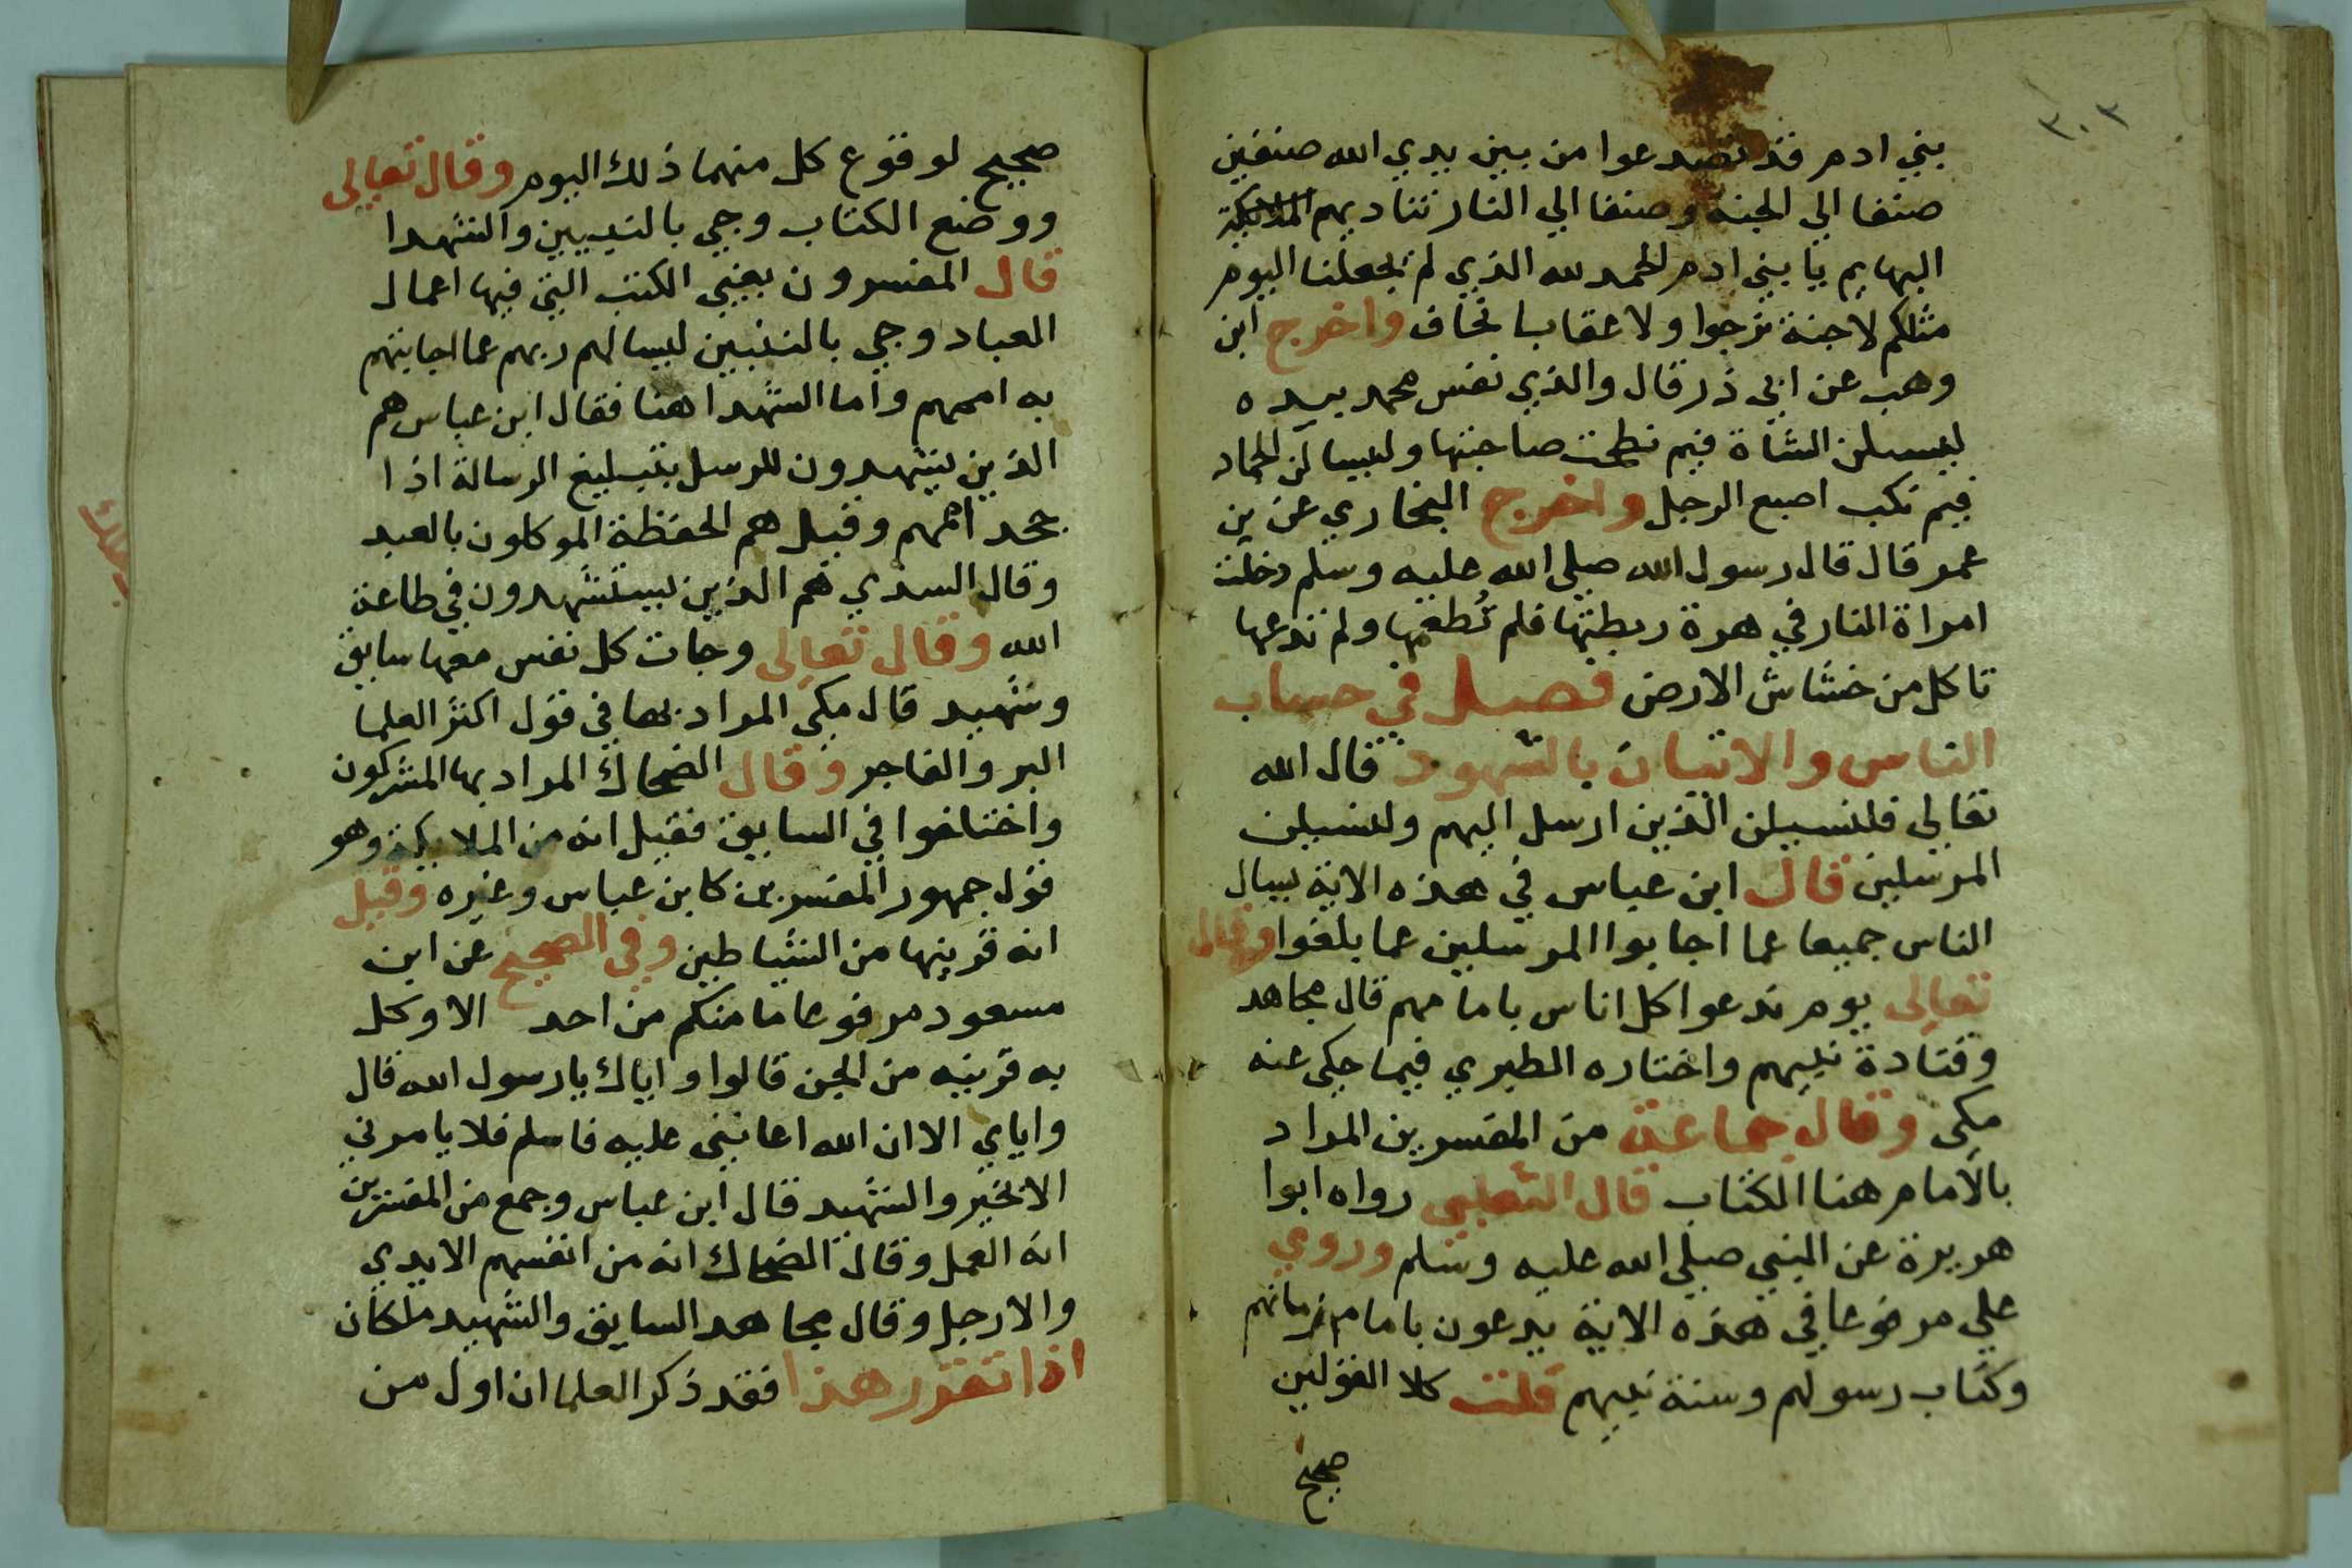 ٣٠٣
بني ادم قد تصدعوا من بين يدي الله صنفين
صنفا الي الجنة وصنفا الي النار تناديهم الملايكة
البهايم يا بني ادم الحمد لله الذي لم يجعلنا اليوم
مثلكم لا جنة نرجوا ولا عقابا نخاف واخرج ابن
وهب عن ابي ذر قال والذي نفس محمد بيده
ليسيلن الشاة فيم نطحت صاحبتها وليسالن الجماد
فيم نكب اصبع الرجل واخرج البخاري عن بن
عمر قال قال رسول الله صلي الله عليه وسلم دخلت
امراة النار في هرة ربطتها فلم تُطعمها ولم تدعها
تاكل من خشاش الارض فصل في حساب
الناس والاتيان بالشهود قال الله
تعالي فلنسيلن الذين ارسل اليهم ولنسيلن
المرسلين قال ابن عباس في هذه الاية يسال
الناس جميعا عما اجابوا المرسلين عما بلغوا وقال
تعالى يوم ندعوا كل اناس بامامهم قال مجاهد
وقتادة نبيهم واختاره الطبري فيما حكى عنه
مكى وقال جماعة من المفسرين المراد
بالامام هنا الكتاب قال الثعلبي رواه ابوا
هريرة عن النبي صلي الله عليه وسلم وروي
علي مرفوعا في هذه الاية يدعون بامام زمانهم
وكتاب رسولهم وسنة نبيهم قلت كلا القولين
صحيح
صحيح لوقوع كل منهما ذلك اليوم وقال تعالى
ووضع الكتاب وجي بالنبيين والشهدا
قال المفسرون يعني الكتب التي فيها اعمال
العباد وجي بالنبيين ليسالهم ربهم عما اجابتهم
به اممهم واما الشهدا هنا فقال ابن عباس هم
الذين يشهدون للرسل بتبليغ الرسالة اذا
جحد اممهم وقيل هم الحفظة الموكلون بالعبد
وقال السدي هم الذين يستشهدون في طاعة
الله وقال تعالى وجات كل نفس معها سايق
وشهيد قال مكي المراد بها في قول اكثر العلما
البر والفاجر وقال الضحاك المراد بها المشركون
واختلفوا في السايق فقيل انه من الملايكة وهو
قول جمهور المفسرين كابن عباس وغيره وقيل
انه قرينها من الشياطين وفي الصحيح عن ابن
مسعود مرفوعا ما منكم من احد الا وكل
به قرينه من الجن قالوا واياك يا رسول الله قال
واياي الا ان الله اعانني عليه فاسلم فلا يامرني
الا بخير والشهيد قال ابن عباس وجمع من المفسرين
انه العمل وقال الضحاك انه من انفسهم الايدي
والارجل وقال مجاهد السايق والشهيد ملكان
اذا تقرر هذا فقد ذكر العلما ان اول من